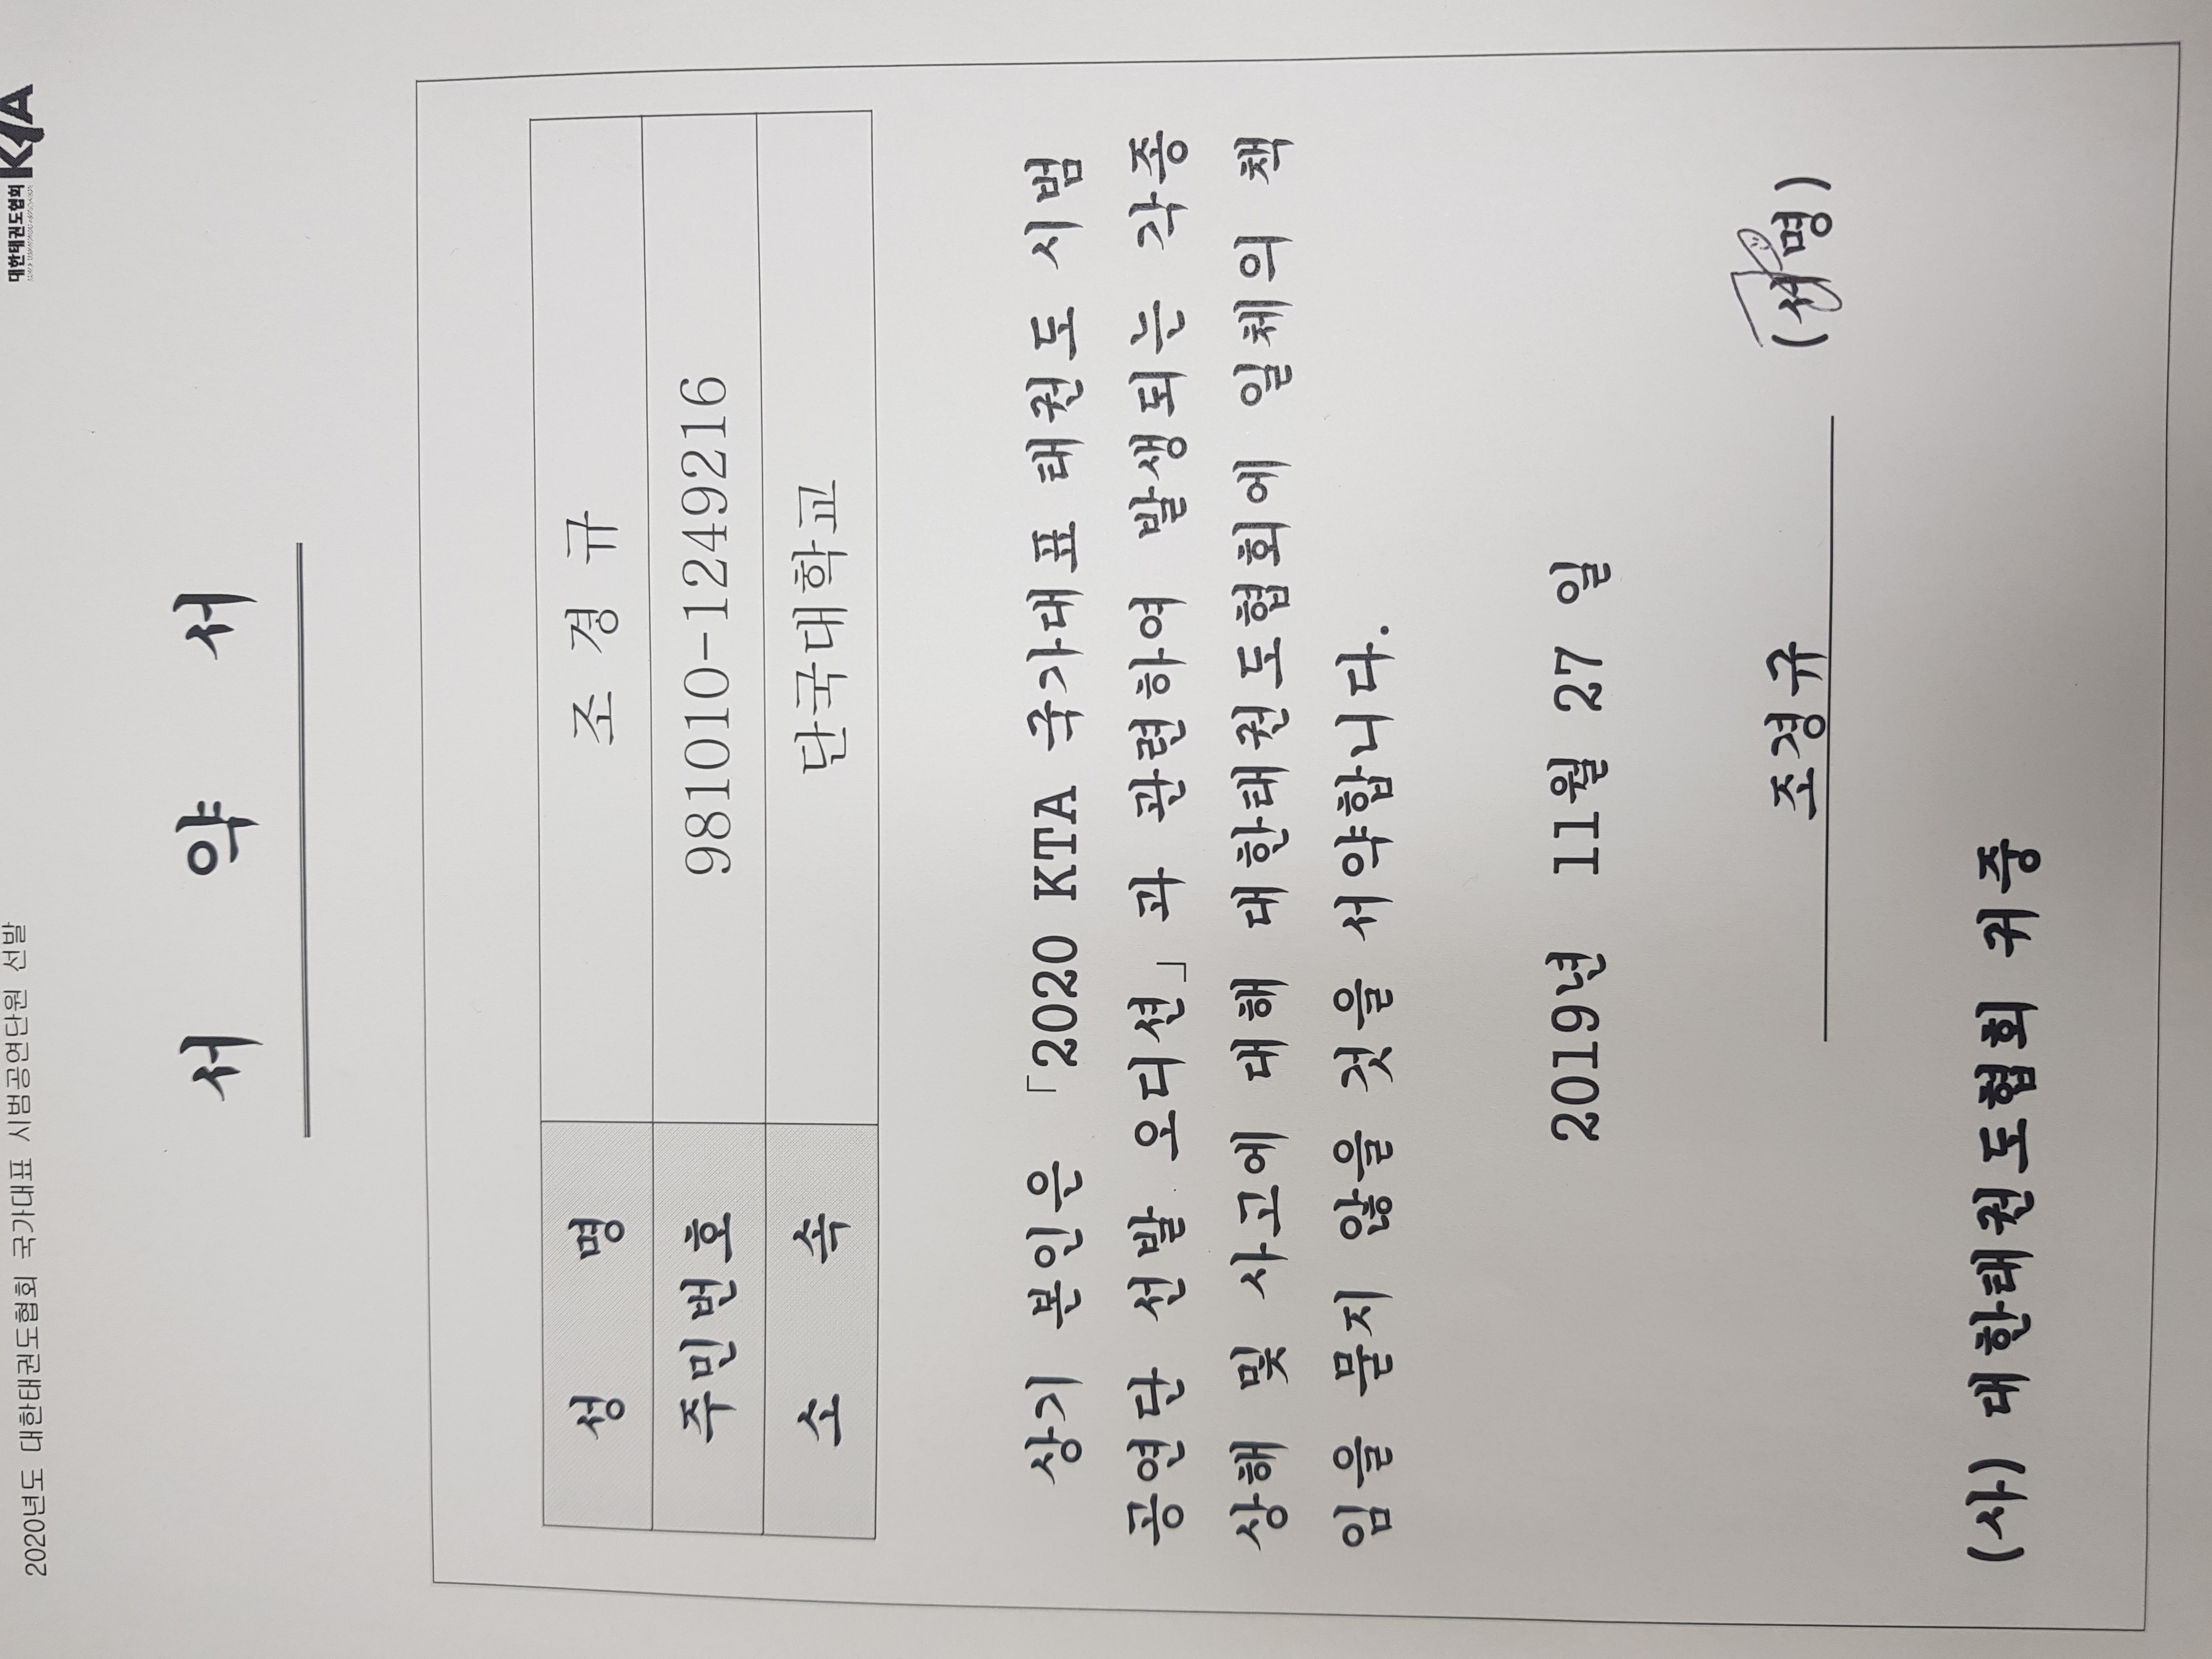 2020년도 대한태권도협회 국가대표 시범공연단원 선발
대한태권도협회 KTA
서 약 서
성 명 조 경 규
주민번호 981010-1249216
소 속 단국대학교
상기 본인은 「2020 KTA 국가대표 태권도 시범
공연단 선발 오디션」과 관련하여 발생되는 각종
상해 및 사고에 대해 대한태권도협회에 일체의 책
임을 묻지 않을 것을 서약합니다.
2019년 11월 27 일
조경규 (서명)
(사) 대한태권도협회 귀중